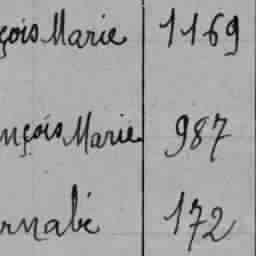 çois Marie 1169
nçois Marie 987
rnabé 172